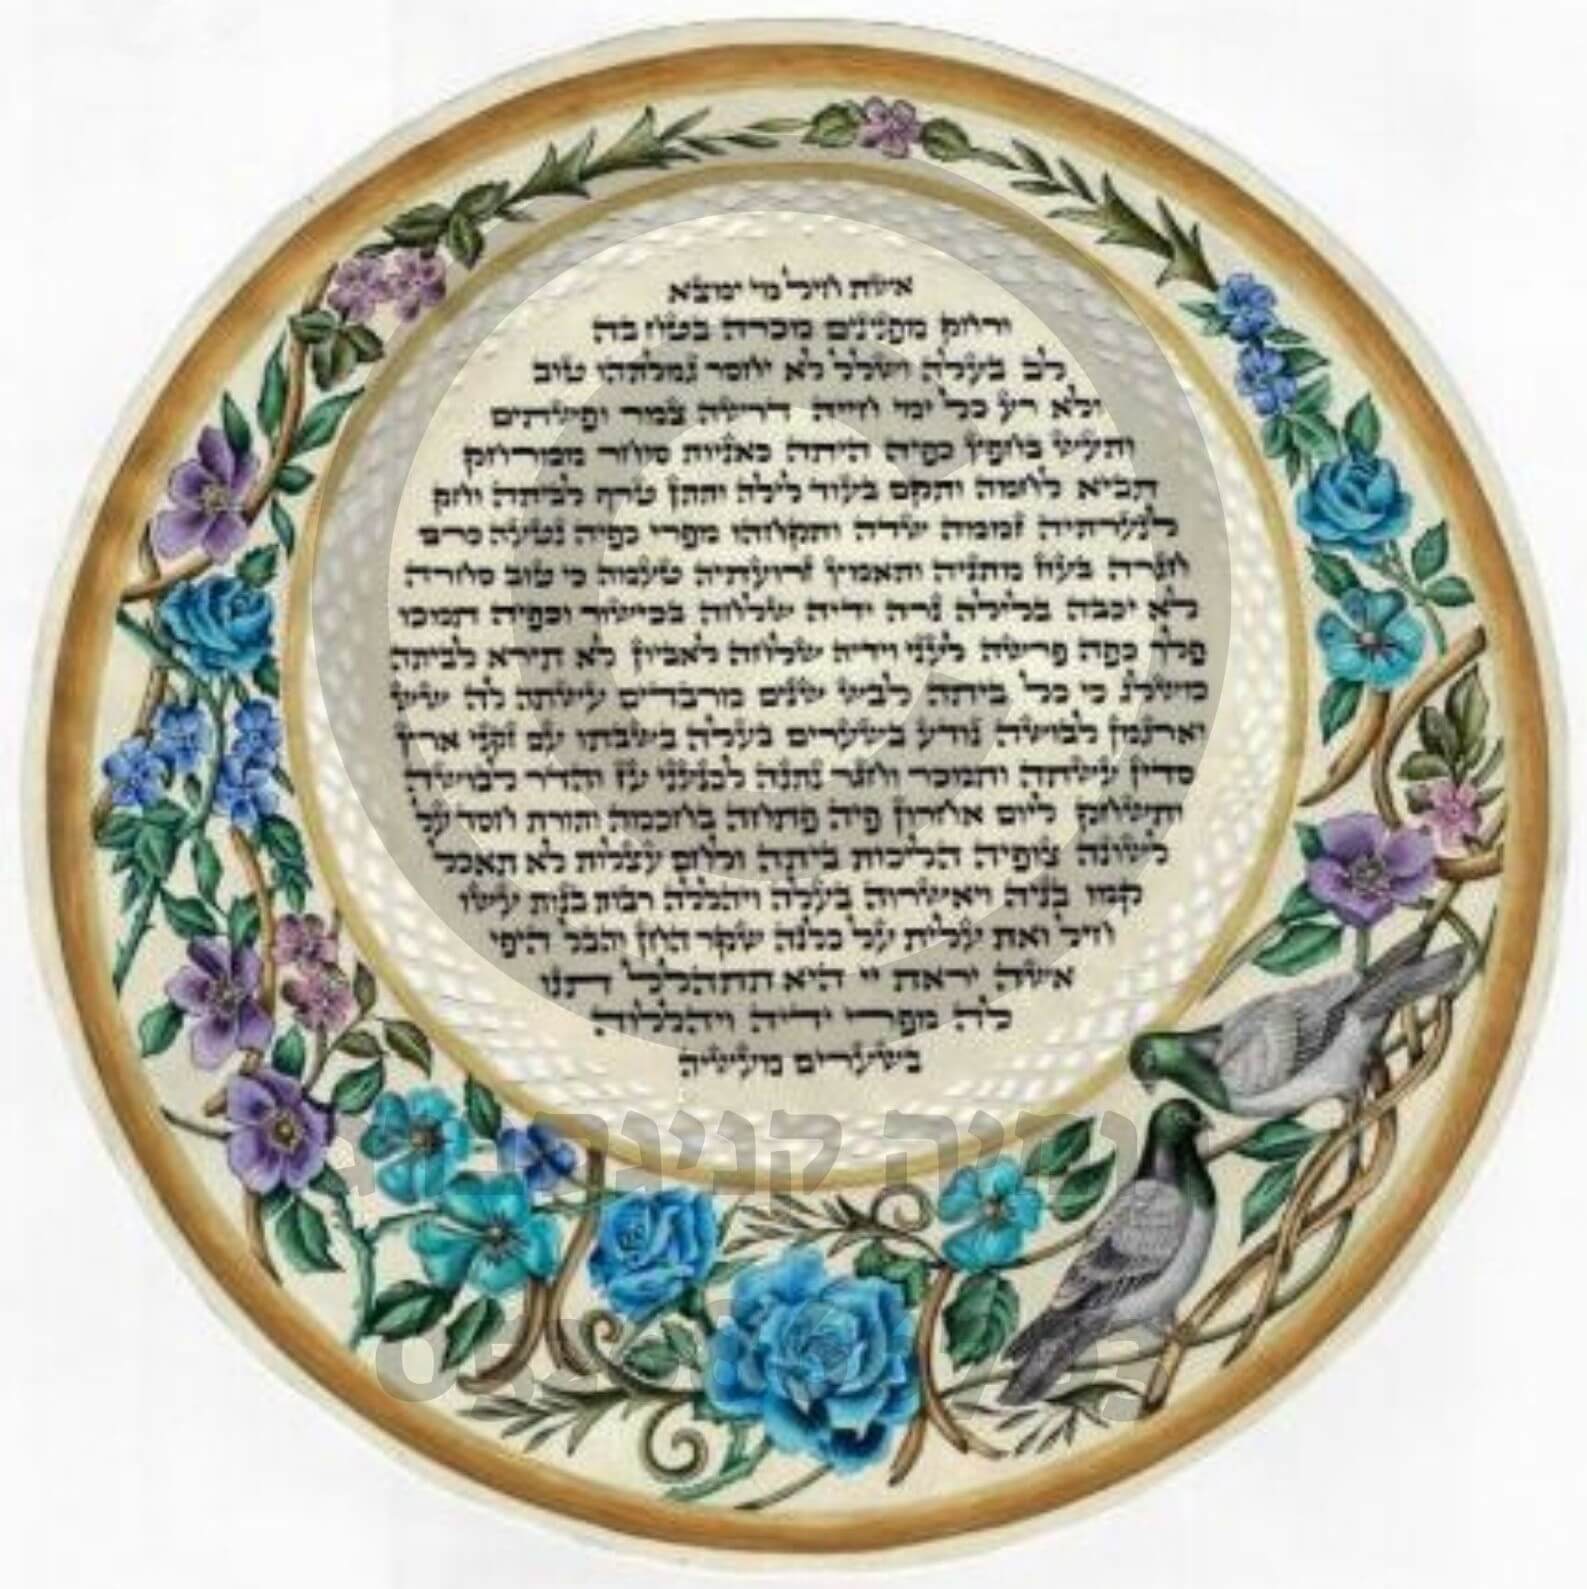 אשת חיל מי ימצא
ורחק מפנינים מכרה בטח בה
לב בעלה ושלל לא יחסר גמלתהו טוב
ולא רע כל ימי חייה דרשה צמר ופשתים
ותעש בחפץ כפיה היתה כאניות סוחר ממרחק
תביא לחמה ותקם בעוד לילה ותתן טרף לביתה וחק
לנערתיה זממה שדה ותקחהו מפרי כפיה נטעה כרם
חגרה בעוז מתניה ותאמץ זרועתיה טעמה כי טוב סחרה
לא יכבה בלילה נרה ידיה שלחה בכישור וכפיה תמכו
פלך כפה פרשה לעני וידיה שלחה לאביון לא תירא לביתה
משלג כי כל ביתה לבש שנים מרבדים עשתה לה שש
וארגמן לבושה נודע בשערים בעלה בשבתו עם זקני ארץ
סדין עשתה ותמכר וחגר נתנה לכנעני עז והדר לבושה
ותשחק ליום אחרון פיה פתחה בחכמה ותורת חסד על
לשונה צופיה הליכות ביתה ולחם עצלות לא תאכל
קמו בניה ויאשרוה בעלה ויהללה רבות בנות עשו
חיל ואת עלית על כלנה שקר החן והבל היפי
אשה יראת יי היא תתהלל תנו
לה מפרי ידיה ויהללוה
בשערים מעשיה